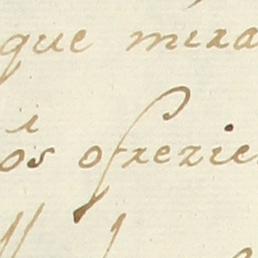 que mira
os ofrezie